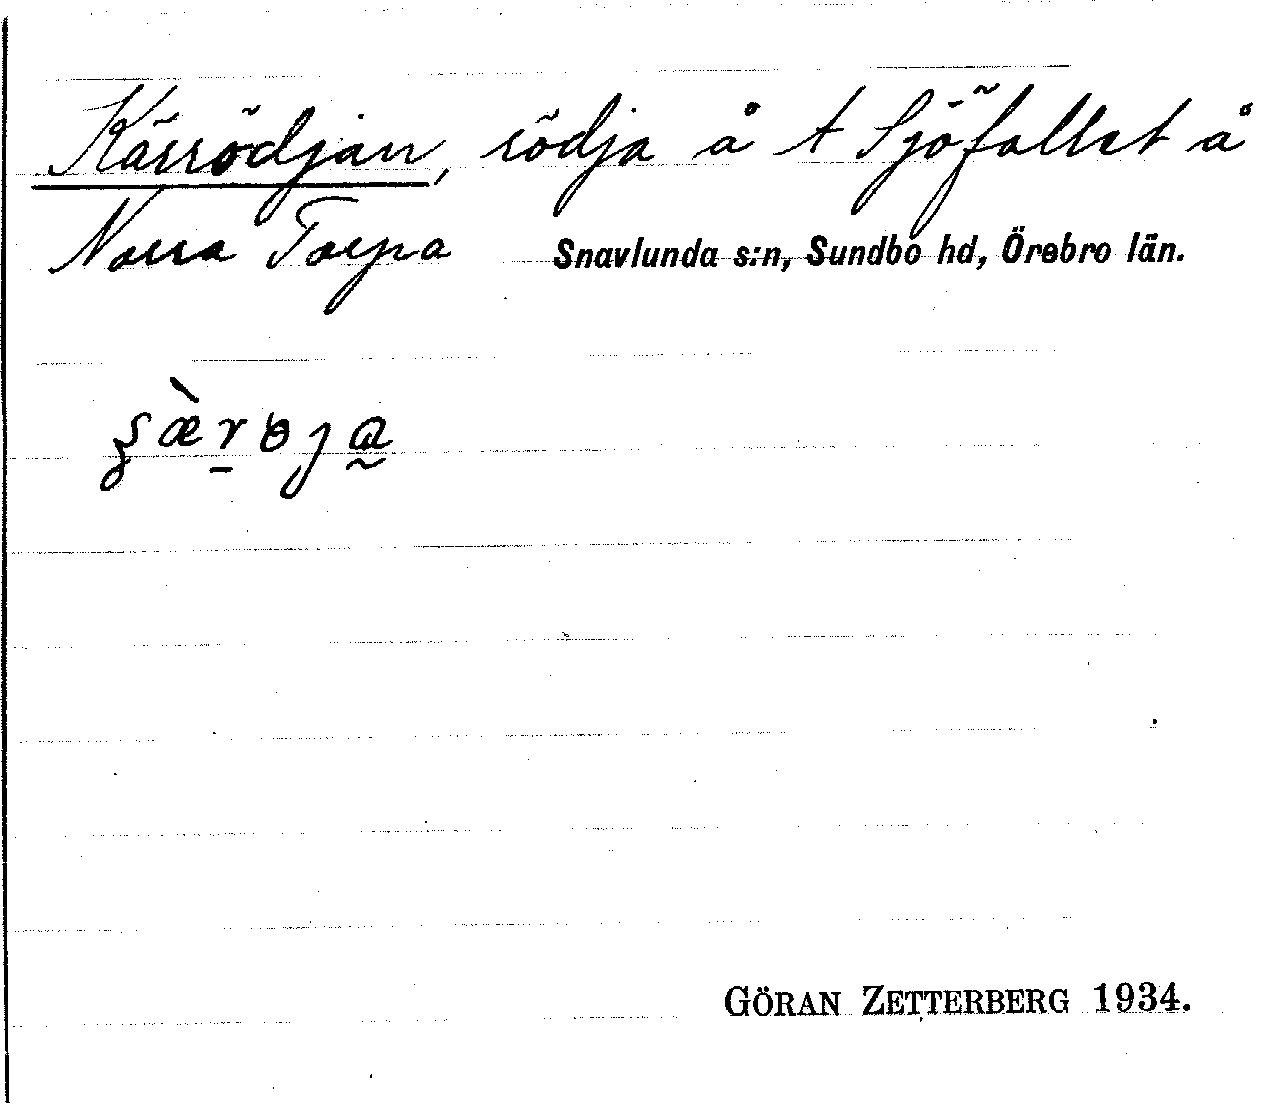 Kärrödjan, rödja å t Sjöfallet å
Norra Torpa Snavlunda s:n, Sundbo hd, Örebro län.
GÖRAN ZETTERBERG 1934.